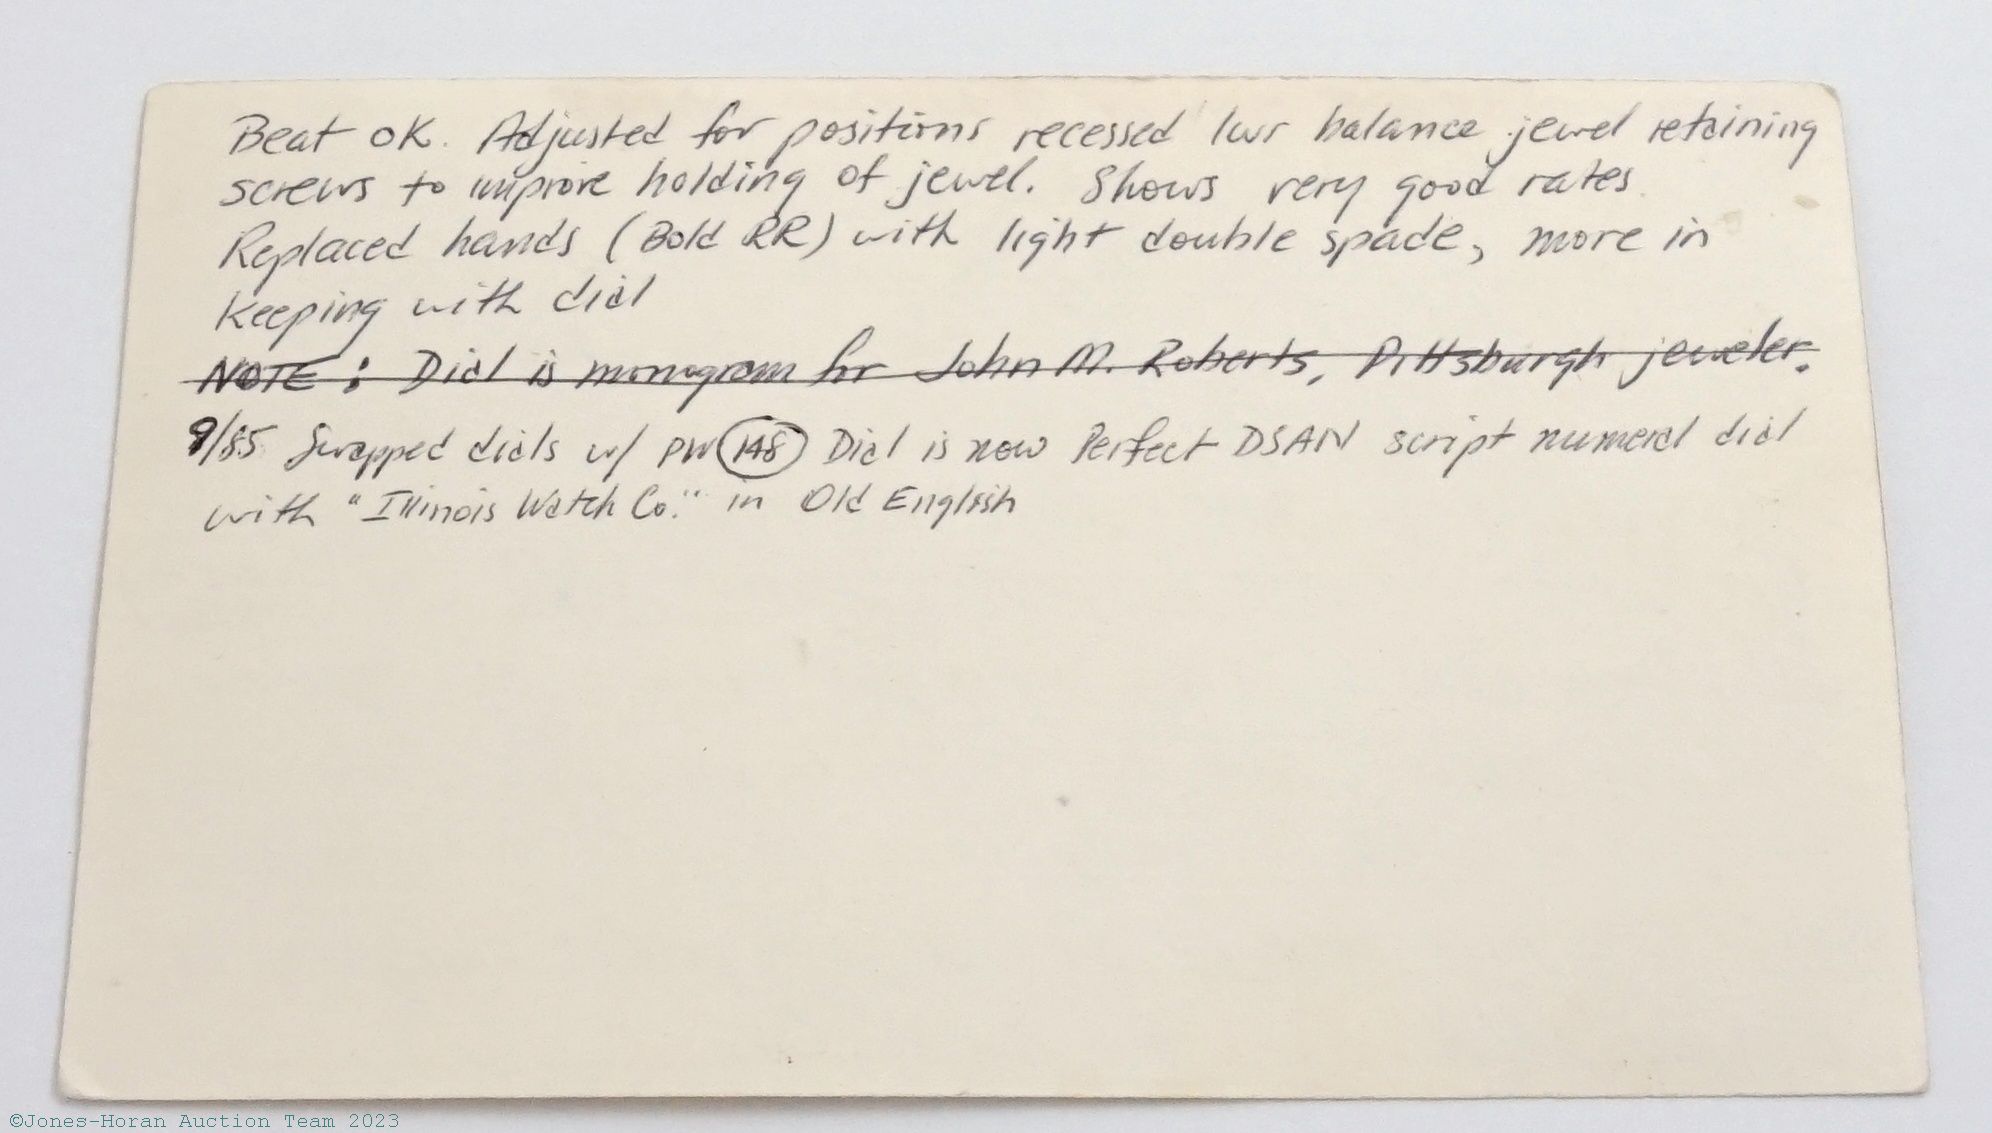 Beat OK. Adjusted for positions recessed lwr balance jewel retaining
screws to improve holding of jewel. Shows very good rates.
Replaced hands (Bold RR) with light double spade, more in
keeping with dial
NOTE: Dial is monogram for John M. Roberts, Pittsburgh jeweler.
9/85 Swapped dials w/ PW 148 Dial is now Perfect DSAN script numeral dial
with "Illinois Watch Co." in Old English
©Jones-Horan Auction Team 2023